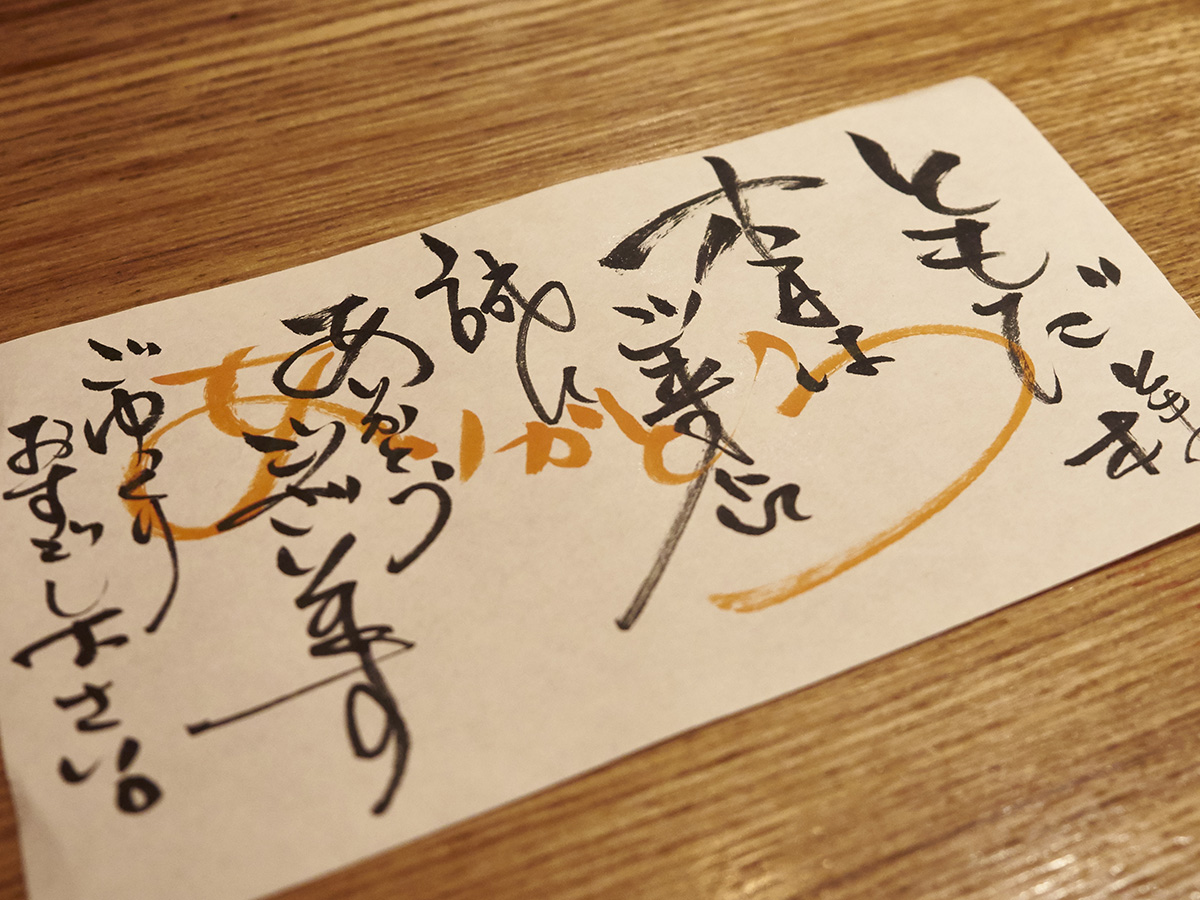 本日は
ご来店
誠に
ありがとう
ございます
ごゆっくり
おすごし下さい。
ありがとう